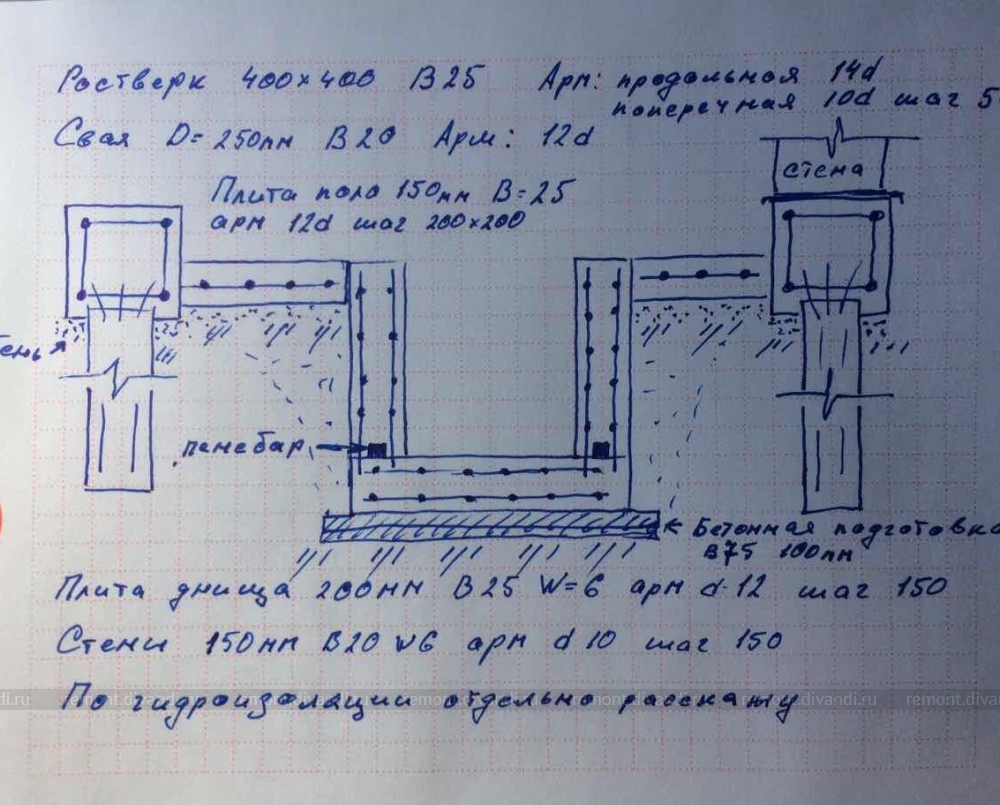 Ростверк 400×400 В25 Арм: продольная 14d
поперечная 10d шаг 5
Свая D=250мм В20 Арм: 12d
стена
Плита пола 150мм В=25
арм 12d шаг 200×200
пенебар
Бетонная подготовка
В75 100мм
Плита днища 200мм В25 W=6 арм d-12 шаг 150
Стены 150мм В20 W6 арм d10 шаг 150
По гидроизоляции отдельно расскажу
remont.divandi.ru